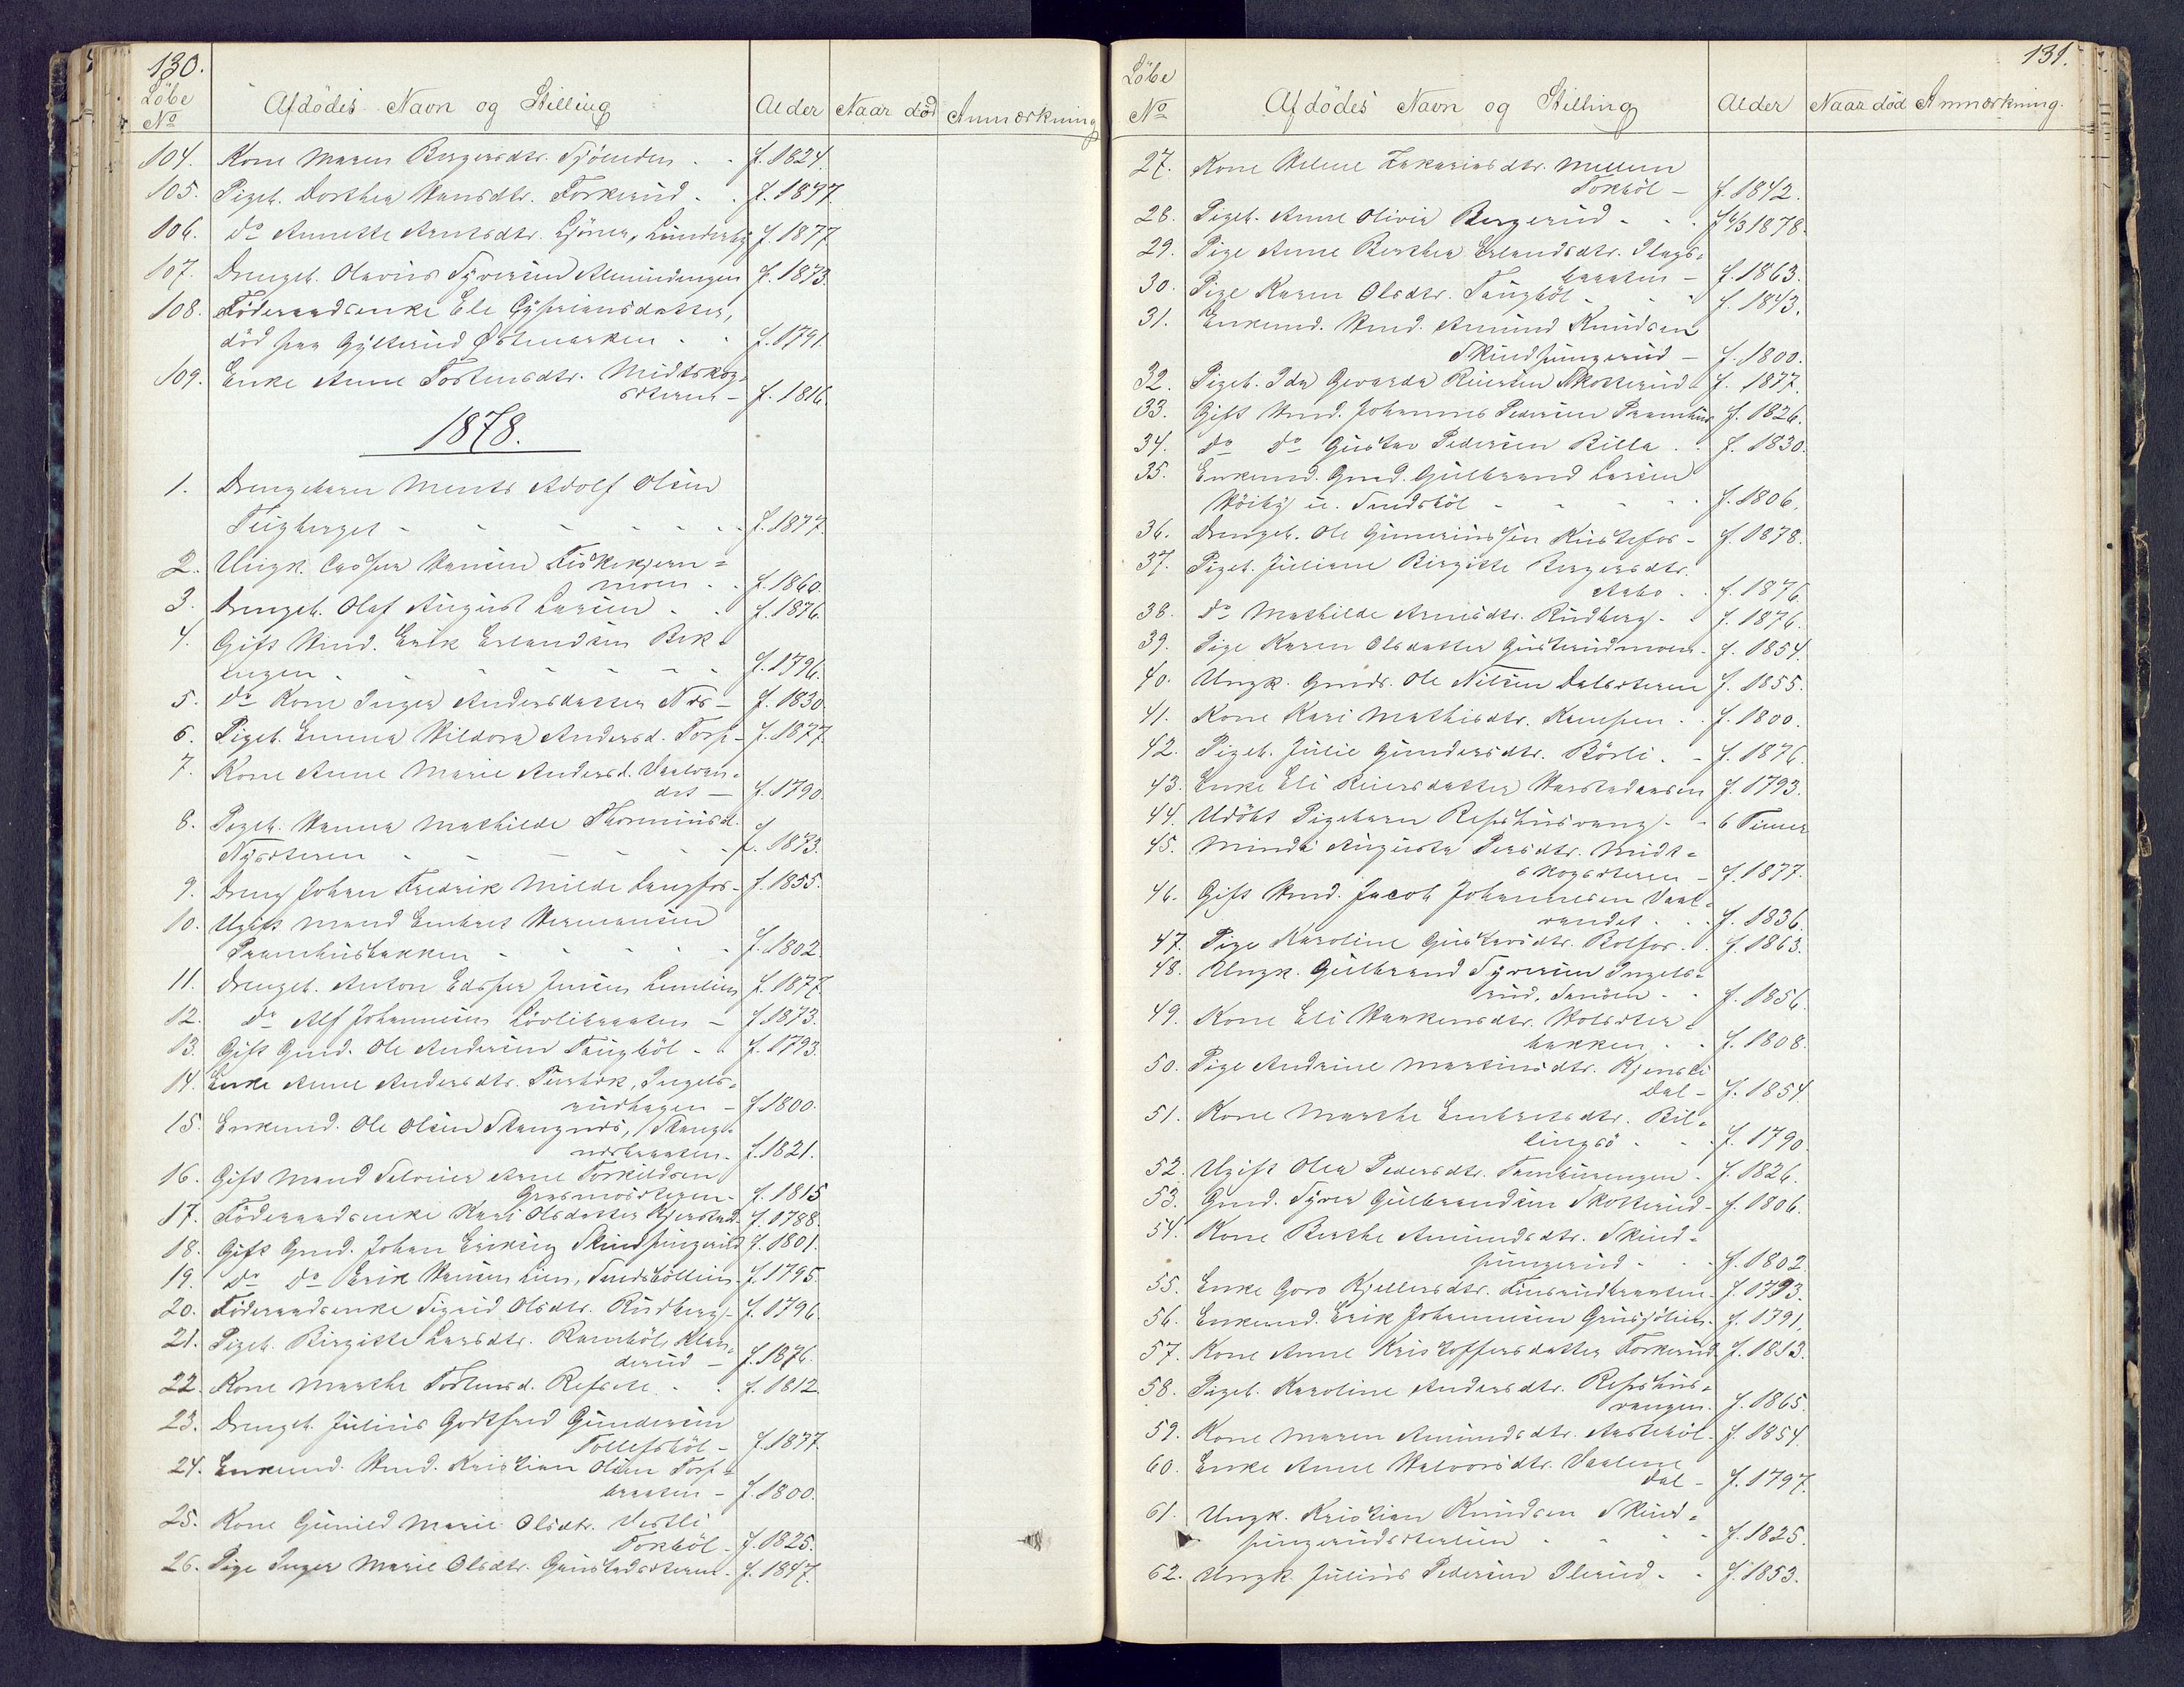 130.
Löbe
No
Afdödes Navn og Stilling
Alder
Naar död
Anmærkning
104. Kone Maren Bergersdtr. Sjöenden - - f. 1824.
105. Pigeb. Dorthea Hansdtr. Torkerud - - f. 1877.
106. do Annette Arntsdtr. Gjöner, Lunderby f. 1877
107. Drengeb. Olavus Syversen Almindingen f. 1873.
108. Föderaadsenke Eli Cypriansdatter,
död paa Gylterud Östmarken - - f. 1791.
109. Enke Anne Torstensdtr. Midtskog-
sæteren - f. 1816.
1878.
1. Drengebarn Ments Adolf Olsen
Teigberget - - - - - - f. 1877.
2. Ungk. Casper Hansen Fiskekjern=
moen - - f. 1860.
3. Drengeb. Olaf August Larsen - - f. 1876.
4. Gift Hmd. Erik Erlandsen Bek=
engen - - - - - - f. 1796.
5. do Kone Inger Andersdatter Næs - f. 1830.
6. Pigeb. Emma Hildora Andersd. Torp - f. 1877.
7. Kone Anne Marie Andersd. Vaalvan-
det - f. 1790.
8. Pigeb. Hanna Mathilde Thorunisd.
Nysæteren - - - - - f. 1873.
9. Dreng Johan Fredrik Milde Langfos - f. 1855.
10. Ugift Mand Embret Hermansen
Praamhusbakken - - - - f. 1802.
11. Drengeb. Anton Edvher Jensen Lemlien f. 1877.
12. do Alf Johannesen Lövlibraaten - f. 1873.
13. Gift Gmd. Ole Andersen Taugböl - - f. 1793.
14. Enke Anne Andersdtr. Furbæk, Ingels-
rudhagen - f. 1800.
15. Enkemd. Ole Olsen Stangnæs, Stang-
næsbraaten - f. 1821.
16. Gift Mand Selveier Arne Torkildsen
Græsmosæteren - f. 1815
17. Föderaadsenke Kari Olsdatter Kjerstad - f. 1788.
18. Gift Gmd. Johan Eriksen Skindpungrud f. 1801.
19. do do Erik Hansen Lien, Sundsböllien - f. 1795.
20. Föderaadsenke Sigrid Olsdtr. Rudberg - f. 1796.
21. Pigeb. Birgitte Larsdtr. Ramböl, Klan-
derud - f. 1876.
22. Kone Marthe Torstensd. Refsete - - f. 1812.
23. Drengeb. Julius Godtfred Gundersen
Tollefsböl - f. 1877.
24. Enkemd. Hmd. Kristian Olsen Torp=
braaten - f. 1800.
25. Kone Gunild Marie Olsdtr. Vestli
Tokböl - f. 1825.
26. Pige Inger Marie Olsdtr. Grinstadsæteren - f. 1847.
131.
Löbe
No
Afdödes Navn og Stilling
Alder
Naar död
Anmærkning.
27. Kone Helene Zakariasdtr. Mellem
Tokböl - f. 1842.
28. Pigeb. Anne Olivia Bergerud - - f 4/3 1878.
29. Pige Anne Berthea Erlandsdtr. Plags-
braaten - f. 1863.
30. Pige Karen Olsdtr. Taugböl - - - f. 1843.
31. Enkemd. Hmd. Amund Knudsen
Skindpungerud - f. 1800.
32. Pigeb. Ida Gevarda Reiersen Skotterud - f. 1877.
33. Gift Hmd. Johannes Pedersen Praamhus f. 1826.
34. do do Gustav Pedersen Billa - - f. 1830.
35. Enkemd. Gmd. Gulbrand Larsen
Höiby u. Sundsböl - - - - f. 1806.
36. Drengeb. Ole Gunerius sen Kustefos - f. 1878.
37. Pigeb. Juliane Birgitte Bergersdtr.
Aabo - - f. 1876.
38. do Mathilde Arnesdtr. Rudberg - - f. 1876.
39. Pige Karen Olsdatter Gusterudmoen - f. 1854.
40. Ungk. Gmds. Ole Nilsen Dalsæteren f. 1855.
41. Kone Kari Mathisdtr. Kampen - - f. 1800.
42. Pigeb. Julie Gundersdtr. Börli - - f. 1876.
43. Enke Eli Reiersdatter Harstadaasen f. 1793.
44. Udöbt Pigebarn Refshusvang - - 6 Timer
45. Minda Augusta Persdtr. Midt=
skogsæteren - f. 1877.
46. Gift Hmd. Jacob Johannesen Vaal-
vandet - - f. 1836.
47. Pige Karoline Gustavsdtr. Bolfos - - f. 1863.
48. Ungk. Gulbrand Syversen Ingels-
rud, Sanöen - - f. 1856.
49. Kone Eli Haakensdtr. Holsæter-
bakken - - f. 1808.
50. Pige Andrine Martinsdtr. Kjensli
dal - f. 1854.
51. Kone Marthe Embretsdtr. Bil-
lingsö - - f. 1790.
52. Ugift Olea Pedersdtr. Tamburengen - f. 1826.
53. Gmd. Syver Gulbrandsen Skotterud - f. 1806.
54. Kone Berthe Amundsdtr. Skind-
pungerud - - f. 1802.
55. Enke Goro Kjellersdtr. Finsrudbraaten - f. 1793.
56. Enkemd. Erik Johannesen Grusjölien - f. 1791.
57. Kone Anne Kristoffersdatter Torkerud - f. 1813.
58. Pigeb. Karoline Andersdtr. Refshus-
vangen - f. 1865.
59. Kone Maren Amundsdtr. Aasteböl - f. 1854.
60. Enke Anne Halvorsdtr. Vaalene
dal - f. 1797.
61. Ungk. Kristian Knudsen Skind-
pungerudsæterlien - - - - f. 1825.
62. Ungk. Julius Pedersen Plerud - - f. 1853.